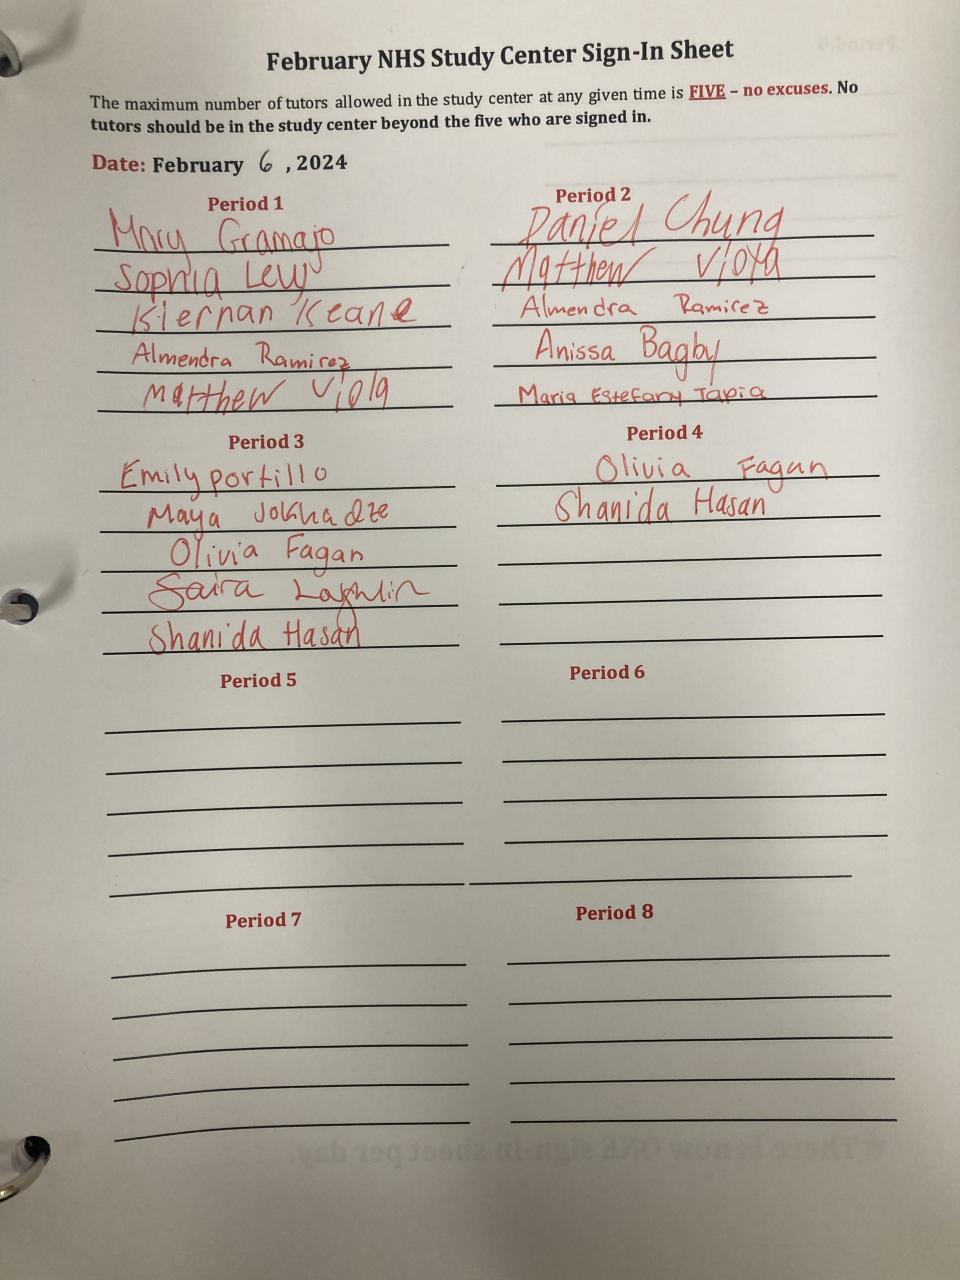 February NHS Study Center Sign-In Sheet
The maximum number of tutors allowed in the study center at any given time is FIVE – no excuses. No
tutors should be in the study center beyond the five who are signed in.
Date: February 6, 2024
Period 1
Mary Gramajo
Sophia Levy
Kiernan Keane
Almendra Ramirez
Matthew Viola
Period 2
Daniel Chung
Matthew Viola
Almendra Ramirez
Anissa Bagby
Maria Estefany Tapia
Period 3
Emily portillo
Maya Jokhadze
Olivia Fagan
Saira
Shanida Hasan
Period 4
Olivia Fagan
Shanida Hasan
Period 5
Period 6
Period 7
Period 8